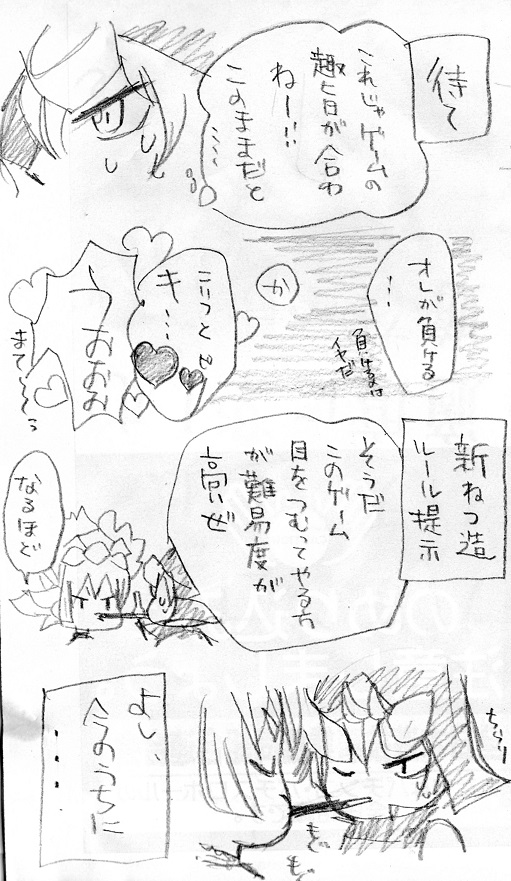 待て
これじゃゲームの
趣旨が合わ
ねー!!
このままだと
……
オレが負ける
…
負けるのは
イヤだ
か
こいつとピ
キ…
うおおお
まて〜〜ろ
新ねつ造
ルール提示
そうだ
このゲーム
目をつむってやる方
が難易度が
高いぜ
なるほど
よし、
今のうちに
・・・・
ちらり
もぐ
もぐ